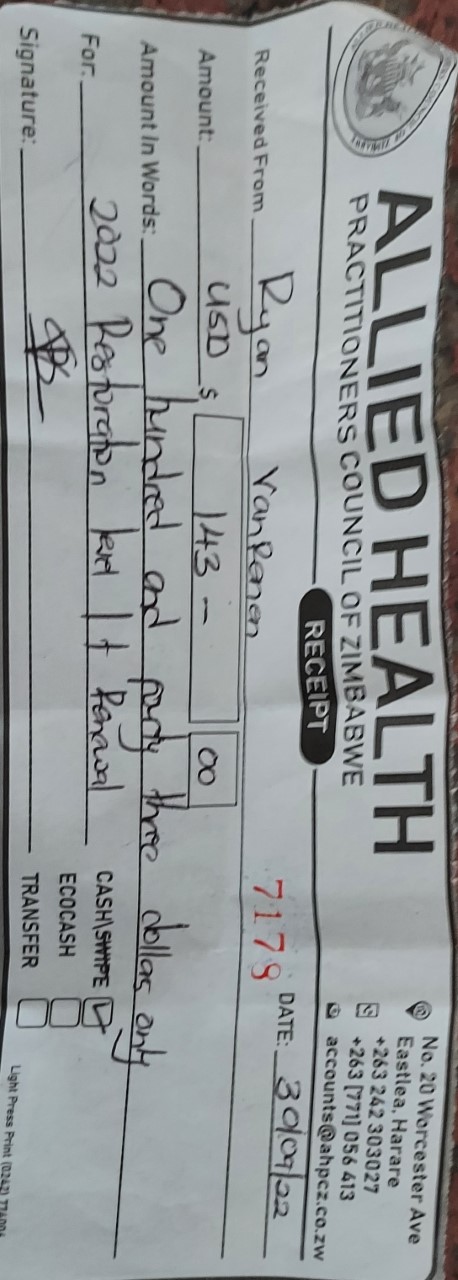 ALLIED HEALTH
PRACTITIONERS COUNCIL OF ZIMBABWE
No. 20 Worcester Ave
Eastlea, Harare
+263 242 303027
+263 [771] 056 413
accounts@ahpcz.co.zw
RECEIPT
7179 DATE: 30/09/22
Received From Ryan VanRenen
Amount: USD $ 143 – 00
Amount In Words: One hundred and party three dollas only
For: 2022 Restoration level 1 + Renewal
CASH\SWIPE
ECOCASH
Signature:
TRANSFER
Light Press Print (0242)